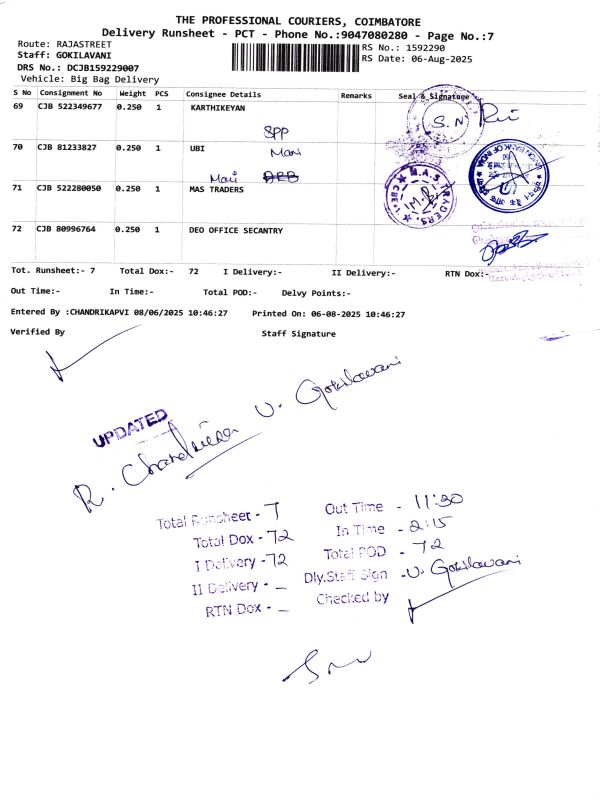 THE PROFESSIONAL COURIERS, COIMBATORE
Delivery Runsheet - PCT - Phone No.:9047080280 - Page No.:7
Route: RAJASTREET
Staff: GOKILAVANI
DRS No.: DCJB159229007
Vehicle: Big Bag Delivery
RS No.: 1592290
RS Date: 06-Aug-2025
S No Consignment No Weight PCS Consignee Details Remarks Seal & Signature
69 CJB 522349677 0.250 1 KARTHIKEYAN
SPP
S. N
70 CJB 81233827 0.250 1 UBI
Mani
BANK OF INDIA
71 CJB 522280050 0.250 1 MAS TRADERS
Mari
M.A.S TRADERS
72 CJB 80996764 0.250 1 DEO OFFICE SECANTRY
Tot. Runsheet:- 7 Total Dox:- 72 I Delivery:- II Delivery:- RTN Dox:-
Out Time:- In Time:- Total POD:- Delvy Points:-
Entered By :CHANDRIKAPVI 08/06/2025 10:46:27 Printed On: 06-08-2025 10:46:27
Verified By Staff Signature
UPDATED
R. Chandrika
U. Gokilavani
Total Runsheet - 7 Out Time - 11:30
Total Dox - 72 In Time - 2:15
I Delivery - 72 Total POD - 72
II Delivery - _ Dly.Staff Sign - U. Gokilavani
RTN Dox - _ Checked by